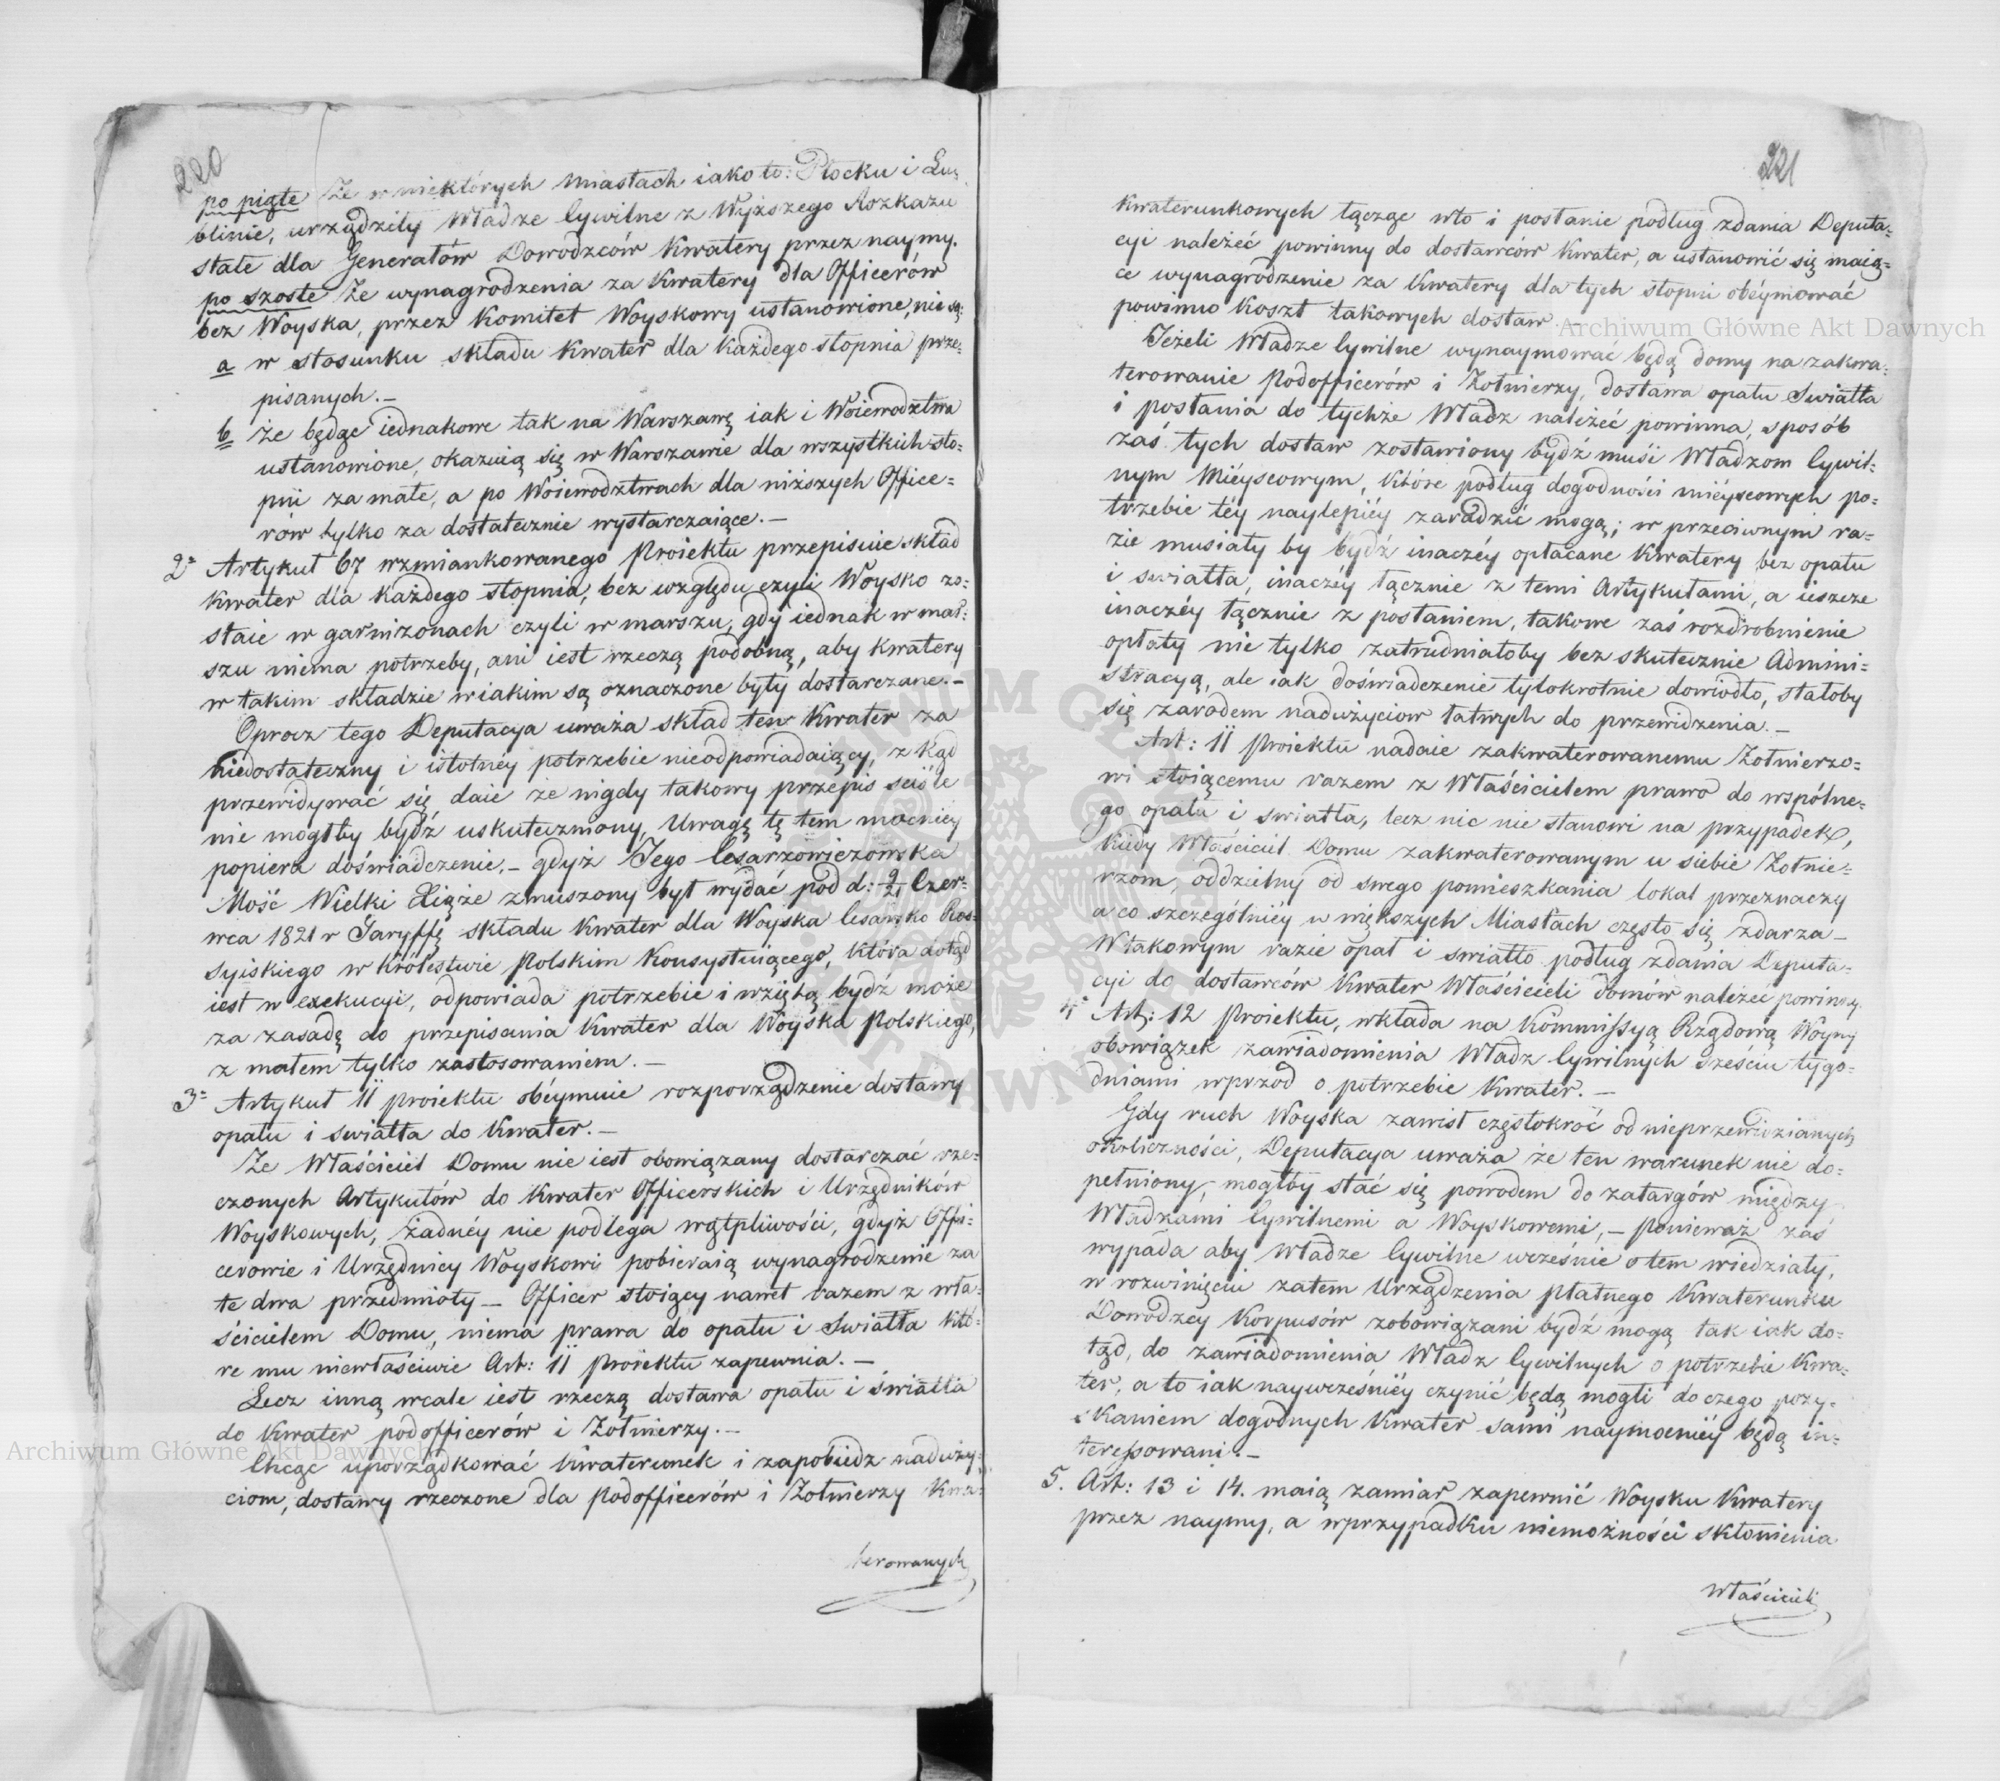 220
po piąte Że w niektórych Miastach iako to: Płocku i Lu-
blinie, urządziły Władze Cywilne z Wyższego Rozkazu
stałe dla Generałów Dowodzców Kwatery przez naymy.
po szoste Że wynagrodzenia za Kwatery dla Officerów
bez Woyska, przez Komitet Woyskowy ustanowione, nie są:
a w stosunku składu Kwater dla każdego stopnia prze=
pisanych.—
b że będąc iednakowe tak na Warszawę iak i Woiewodztwa
ustanowione, okazuią się w Warszawie dla wszystkich sto-
pni za małe, a po Woiewodztwach dla niższych Office=
rów tylko za dostatecznie wystarczaiące.—
2= Artykuł 67 wzmiankowanego Proiektu przepisuie skład
Kwater dla każdego stopnia, bez względu czyli Woysko zo=
staie w garnizonach czyli w marszu, gdy iednak w mar=
szu niema potrzeby, ani iest rzeczą podobną, aby kwatery
w takim składzie w iakim są oznaczone były dostarczane.—
Oprocz tego Deputacya uważa skład ten Kwater za
niedostateczny i istotnéy potrzebie nieodpowiadaiący, z kąd
przewidywać się daie że nigdy takowy przepis seiśle
nie mogłby bydź uskuteczniony, Uwagę tę tem mocniéy
popiera doświadczenie.— gdyż Jego Cesarzowiczowska
Mość Wielki Xiąże zmuszony był wydać pod d: 9/21 Czer=
wca 1821 r Taryffę składu Kwater dla Woyska Cesarsko Ros=
syiskiego w Królestwie Polskim Konsystuiącego, która dotąd
iest w exekucyi, odpowiada potrzebie i wziętą bydź może
za zasadę do przepisania Kwater dla Woyska Polskiego,
z małem tylko zastosowaniem.—
3= Artykuł 11 proiektu obéymuie rozporządzenie dostawy
opału i swiatła do Kwater.—
Że Właściciel Domu nie iest obowiązany dostarczać rze=
czonych Artykułów do Kwater Officerskich i Urzędników
Woyskowych, żadnéy nie podlega wątpliwości, gdyż Offi=
cerowie i Urzędnicy Woyskowi pobieraią wynagrodzenie za
te dwa przedmioty — Officer stoiący nawet razem z wła=
ścicielem Domu, niema prawa do opału i Swiatła któ=
re mu niewłaściwie Art: 11 Proiektu zapewnia.—
Lecz inną wcale iest rzeczą dostawa opału i światła
do Kwater podofficerów i Żołnierzy.—
Chcąc uporządkować Kwaterunek i zapobiedz naduży=
ciom, dostawy rzeczone dla podofficerów i Żołnierzy Kwa=
terowanych
221
Kwaterunkowych łącząc wto i posłanie podług zdania Deputa=
cyi należeć powinny do dostawców Kwater, a ustanowić się maią=
ce wynagrodzenie za Kwatery dla tych stopni obéymować
powinno Koszt takowych dostaw —
Jeżeli Władze Cywilne wynaymować będą domy na zakwa=
terowanie Podofficerów i Żołnierzy, dostawa opału Swiatła
i posłania do tychże Władz należeć powinna, sposób
zaś tych dostaw zostawiony bydź musi Władzom Cywil=
nym Mieyscowym, które podług dogodności mieyscowych po=
trzebie téy naylepiéy zaradzić mogą; w przeciwnym ra=
zie musiały by bydź inaczéy opłacane Kwatery bez opału
i swiatła, inaczéy łącznie z temi Artykułami, a ieszcze
inaczéy łącznie z posłaniem, takowe zaś rozdrobnienie
opłaty nie tylko zatrudniałoby bez skutecznie Admini=
stracyą, ale iak doświadczenie tylokrotnie dowiodło, stałoby
się zarodem nadużyciow łatwych do przewidzenia.—
Art: 11 Proiektu nadaie zakwaterowanemu Żołnierzo=
wi stoiącemu razem z Właścicielem prawo do wspólne=
go opału i swiatła, lecz nic nie stanowi na przypadek,
kiedy Właściciel Domu zakwaterowanym u siebie Żołnie=
rzom, oddzielny od swego pomieszkania lokal przeznaczy
a co szczególniéy w większych Miastach często się zdarza —
W takowym razie opał i swiatło podług zdania Deputa=
cyi do dostawców Kwater Właścicieli domów należeć powinny.
4= Art: 12 Proiektu, wkłada na Kommissyą Rządową Woyny
obowiązek zawiadomienia Władz Cywilnych sześciu tygo=
dniami wprzod o potrzebie Kwater.—
Gdy ruch Woyska zawisł częstokroć od nieprzewidzianych
okoliczności, Deputacya uważa że ten warunek nie do=
pełniony, mogłby stać się powodem do zatargów między
Władzami Cywilnemi a Woyskowemi,— ponieważ zaś
wypada aby Władze Cywilne wcześnie o tem wiedziały,
w rozwinięciu zatem Urządzenia płatnego Kwaterunku
Dowodzcy Korpusów zobowiązani bydź mogą tak iak do=
tąd, do zawiadomienia Władz Cywilnych o potrzebie Kwa=
ter, a to iak naywcześniéy czynić będą mogli do czego pozy=
skaniem dogodnych Kwater sami naymocniéy będą in=
teressowani.—
5. Art: 13 i 14. maią zamiar zapewnić Woysku Kwatery
przez naymy, a wprzypadku niemożności skłonienia
Właścicieli
Archiwum Główne Akt Dawnych
Archiwum Główne Akt Dawnych